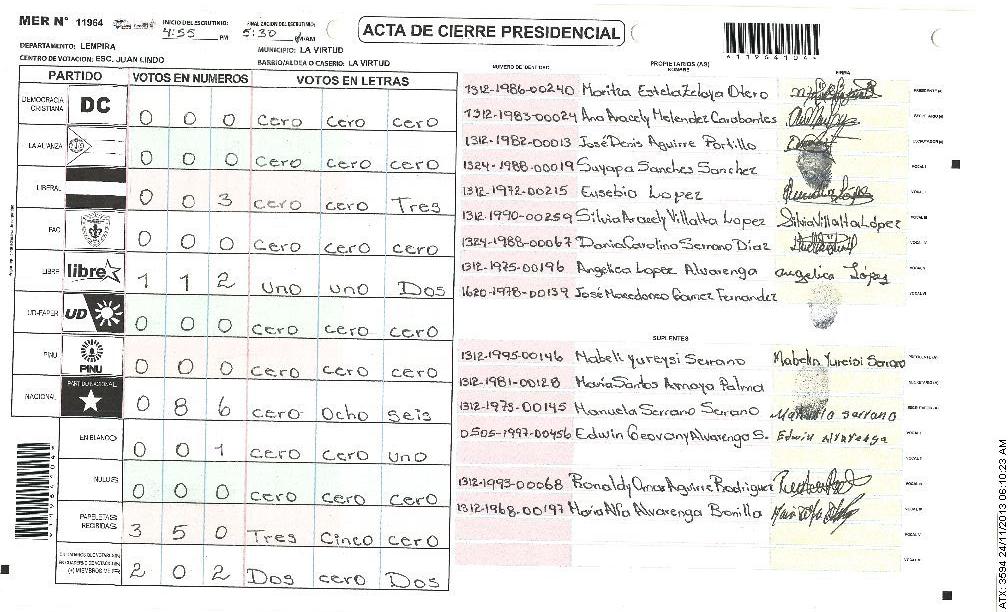 MER N° 11964
INICIO DEL ESCRUTINIO: 4:55 PM
FINALIZACION DEL ESCRUTINIO: 5:30 PM/AM
ACTA DE CIERRE PRESIDENCIAL
DEPARTAMENTO: LEMPIRA
MUNICIPIO: LA VIRTUD
CENTRO DE VOTACION: ESC. JUAN LINDO
BARRIO/ALDEA O CASERIO: LA VIRTUD
PARTIDO VOTOS EN NUMEROS VOTOS EN LETRAS
DEMOCRACIA CRISTIANA DC 0 0 0 cero cero cero
LA ALIANZA 0 0 0 cero cero cero
LIBERAL 0 0 3 cero cero Tres
PAC 0 0 0 cero cero cero
LIBRE libre 1 1 2 uno uno Dos
UD-FAPER UD 0 0 0 cero cero cero
PINU PINU 0 0 0 cero cero cero
NACIONAL PARTIDO NACIONAL 0 8 6 cero ocho seis
EN BLANCO 0 0 1 cero cero uno
NULOS 0 0 0 cero cero cero
PAPELETAS RECIBIDAS 3 5 0 Tres cinco cero
2 0 2 Dos cero Dos
NUMERO DE IDENTIDAD PROPIETARIOS (AS) NOMBRE FIRMA
1312-1986-00240 Maritza Estela Zelaya Otero
1312-1983-00024 Ana Aracely Melendez Carabantes
1312-1982-00013 José Denis Aguirre Portillo
1324-1988-00019 Suyapa Sanches Sanchez
1312-1972-00215 Eusebio Lopez
1312-1990-00259 Silvia Aracely Villalta Lopez Silvia Villalta López
1324-1988-00067 Dania Carolina Serrano Díaz
1312-1975-00196 Angelica Lopez Alvarenga angelica López
1620-1978-00139 José Macedoneo Gamez Fernandez
SUPLENTES
1312-1995-00146 Mabeli yureysi Serrano Mabelin Yureisi Serrano
1312-1981-00128 María Santos Amaya Palma
1312-1973-00145 Manuela Serrano Serrano Manuela serrano
0505-1997-00456 Edwin Geovany Alvarenga S. Edwin Alvarenga
1312-1993-00068 Ronaldy Omar Aguirre Rodriguez
1312-1968-00197 Maria Alfa Alvarenga Bonilla
ATX: 3594 24/11/2013 06:10:23 AM